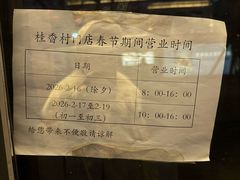 桂香村门店春节期间营业时间
日期 营业时间
2026-2-16（除夕） 8：00-16：00
2026-2-17至2-19
（初一至初三） 10：00-16：00
给您带来不便敬请谅解